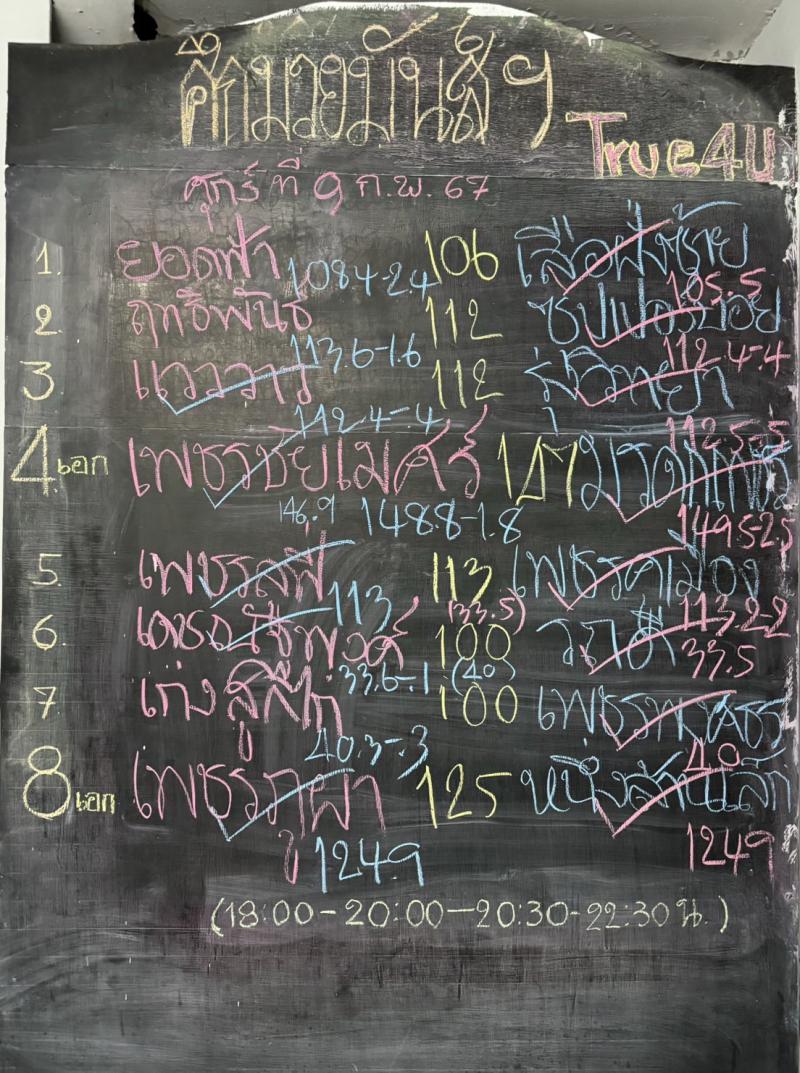 ศึกมวยมันส์ ๆ
True4U
ศุกร์ ที่ 9 ก.พ. 67
1. ยอดฟ้า 106 เสือฝั่งซ้าย
108.4-2.4 105.5
2. ฤทธิ์พันธ์ 112 ซุปเปอร์บอย
113.6-1.6 112.4-.4
3 แวววาว 112 รุ่งวิทยา
112.4-.4 112.5-.5
4 เอก เพชรชัยเมศร์ 147 มรดกเพชร
146.9 148.8-1.8 149.5-2.5
5. เพชรสฟู 113 เพชรคเมือง
113 113.2-.2
6. 100
(33.5) 33.5
33.6-.1 (40)
7. เก่ง 100
40.3-.3 40
8 เอก เพชรภูผา 125 หนึ่งสนามเล็ก
124.9 124.9
(18:00-20:00-20:30-22:30 น.)